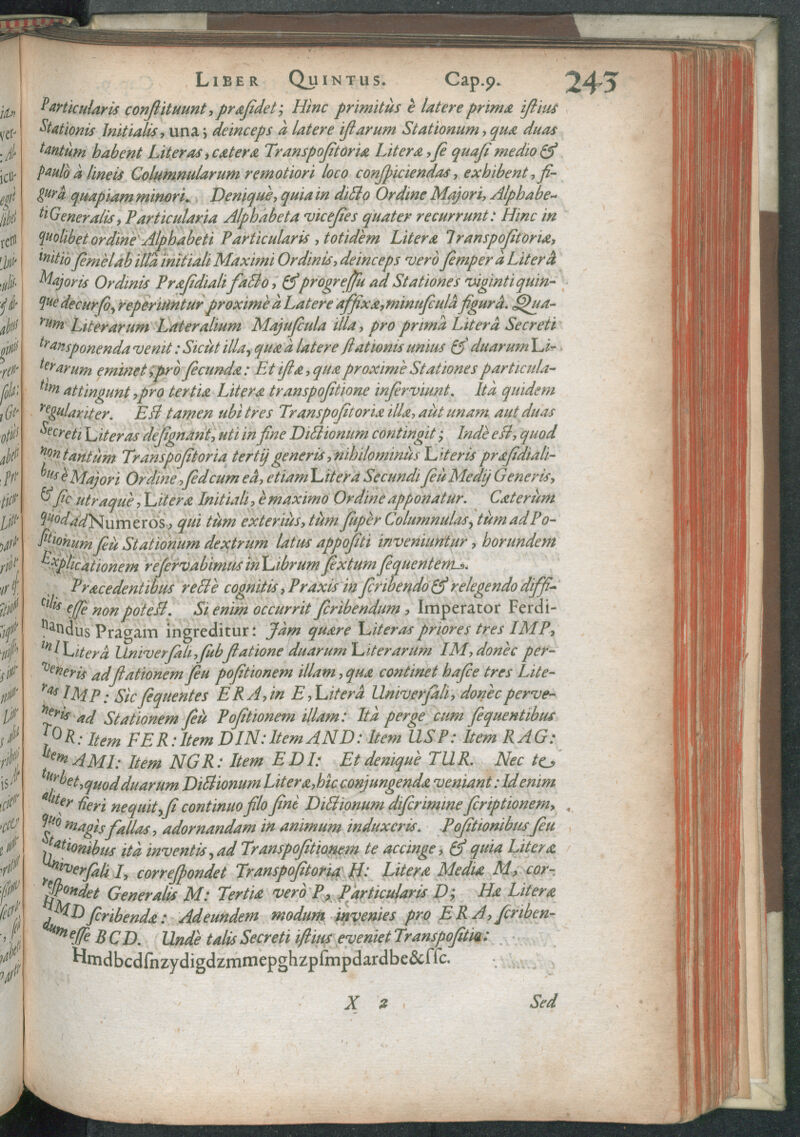 LIBER QUINTUS. Cap.9. 243
Particularis conſtituunt, præſidet; Hinc primitùs è latere primæ iſtius
Stationis Initialis, una; deinceps à latere iſtarum Stationum, quæ duas
tantùm habent Literas, cæteræ Transpoſitoriæ Literæ, ſe quaſi medio &
paulò à lineis Columnularum remotiori loco conſpiciendas, exhibent, fi-
gurâ quapiam minori. Deniquè, quia in dicto Ordine Majori, Alphabe-
ti Generalis, Particularia Alphabeta viceſies quater recurrunt: Hinc in
quolibet ordine Alphabeti Particularis, totidèm Literæ Transpoſitoriæ,
initio ſemèl ab illâ initiali Maximi Ordinis, deinceps verò ſemper à Literâ
Majoris Ordinis Præſidiali facto, & progreſſu ad Stationes viginti quin-
que decurſo, reperiuntur proximè à Latere affixæ, minuſculâ figurâ. Qua-
rum Literarum Lateralium Majuſcula illa, pro primâ Literâ Secreti
transponenda venit: Sicùt illa, quæ à latere ſtationis unius & duarum Li-
terarum eminet, pro ſecunda: Et iſtæ, quæ proximè Stationes particula-
tim attingunt, pro tertiæ Literæ transpoſitione inſerviunt. Ità quidem
regulariter. Eſt tamen ubi tres Transpoſitoriæ illæ, aùt unam aut duas
Secreti Literas deſignant, uti in fine Dictionum contingit; Indè eſt, quod
non tantùm Transpoſitoria tertij generis, nihilominùs Literis præſidiali-
bus è Majori Ordine, ſed cum eâ, etiam Litera Secundi ſeù Medij Generis,
& ſic utraquè, Literæ Initiali, è maximo Ordine apponatur. Cæterùm
quod ad Numeros, qui tùm exteriùs, tùm ſupèr Columnulas, tùm ad Po-
ſitionum ſeù Stationum dextrum latus appoſiti inveniuntur, horundem
Explicationem reſervabimus in Librum ſextum ſequentem.
Præcedentibus rectè cognitis, Praxis in ſcribendo & relegendo diffi-
cilis eſſe non poteſt. Si enim occurrit ſcribendum, Imperator Ferdi-
nandus Pragam ingreditur: Jàm quære Literas priores tres IMP,
in I Literâ Univerſali, ſub ſtatione duarum Literarum IM, donèc per-
veneris ad ſtationem ſeu poſitionem illam, quæ continet haſce tres Lite-
ras IMP: Sìc ſequentes ERA, in E, Literâ Univerſali, donèc perve-
neris ad Stationem ſeù Poſitionem illam: Ità perge cum ſequentibus
TOR: Item FER: Item DIN: Item AND: Item USP: Item RAG:
Item AMI: Item NGR: Item EDI: Et deniquè TUR. Nec te
turbet, quod duarum Dictionum Literæ, hìc conjungendæ veniant: Id enim
aliter fieri nequit, ſi continuo filo ſinè Dictionum diſcrimine ſcriptionem,
quò magis fallas, adornandam in animum induxeris. Poſitionibus ſeu
Stationibus ità inventis, ad Transpoſitionem te accinge, & quia Literæ
Univerſali I, correſpondet Transpoſitoria H: Literæ Mediæ M, cor-
reſpondet Generalis M: Tertiæ verò P, Particularis D; Hæ Literæ
HMD ſcribendæ: Ad eundem modum invenies pro ERA, ſcriben-
dum eſſe BCD. Undè talis Secreti iſtius eveniet Transpoſitio:
Hmdbcdſnzydigdzmmepghzpſmpdardbe&ſſc.
X 2 Sed